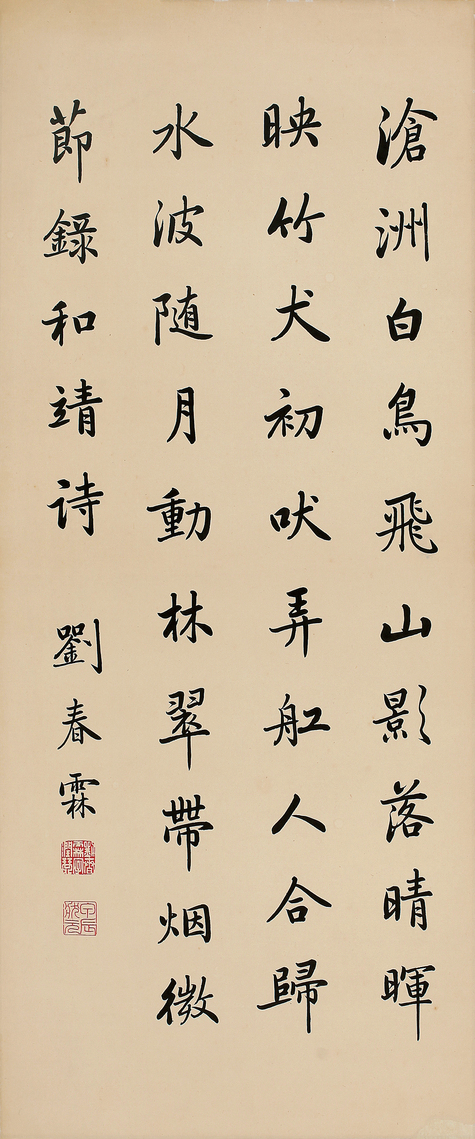 滄洲白鳥飛山影落晴暉
映竹犬初吠弄舡人合歸
水波隨月動林翠帶烟微
節錄和靖诗 劉春霖